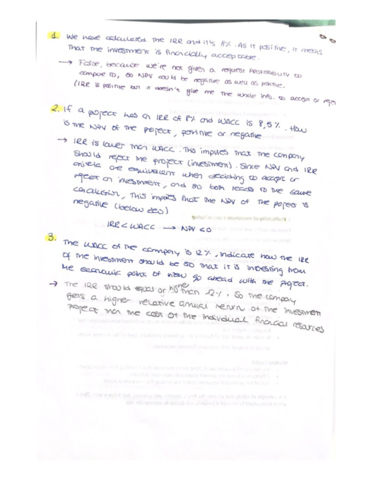 1. We have calculated the IRR and it's 8%. As it positive, it means
that the investment is financially acceptable.
→ False, because we're not given a request profitability to
compare to, so NPV could be negative as well as positive.
(IRR is positive but it doesn't give me the whole info. to accept or reject
2. If a project has an IRR of 8% and WACC is 8,5%. How
is the NPV of the project, positive or negative
→ IRR is lower than WACC. This implies that the company
should reject the project (investment). Since NPV and IRR
criteria are equivalent when deciding to accept or
reject an investment, and so both leads to the same
conclusion, this implies that the NPV of the project is
negative (below zero)
IRR < WACC → NPV < 0
3. The WACC of the company is 12%. Indicate how the IRR
of the investment should be so that it is interesting from
the economic point of view go ahead with the project.
→ The IRR should equal or higher than 12%. So the company
gets a higher relative annual return of the investment
project than the cost of the individual financial resources